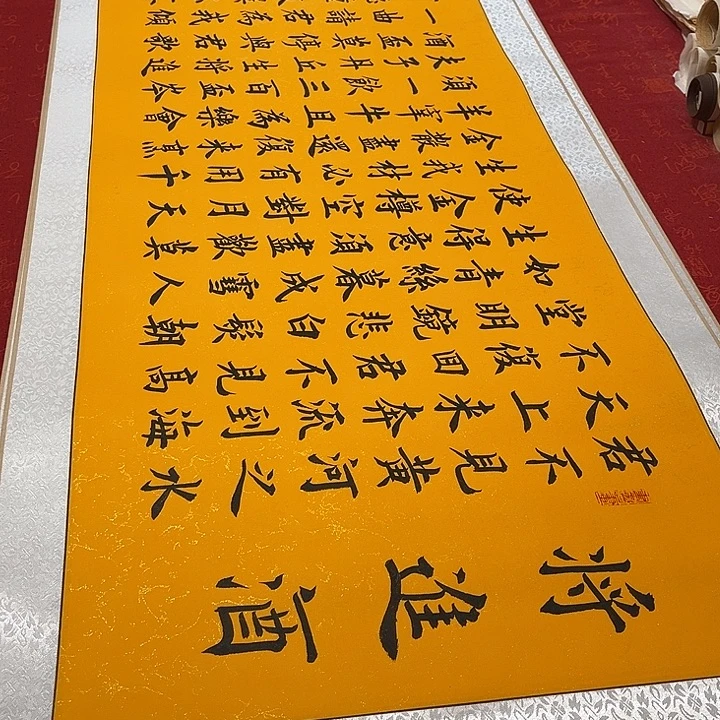 将進酒
君不見黃河之水
天上来奔流到海
不復回君不見高
堂明鏡悲白髮朝
如青絲暮成雪人
生得意須盡歡莫
使金樽空對月天
生我材必有用千
金散盡還復来烹
羊宰牛且為樂會
須一飲三百盃岑
夫子丹丘生將進
酒盃莫停與君歌
一曲請君為我傾